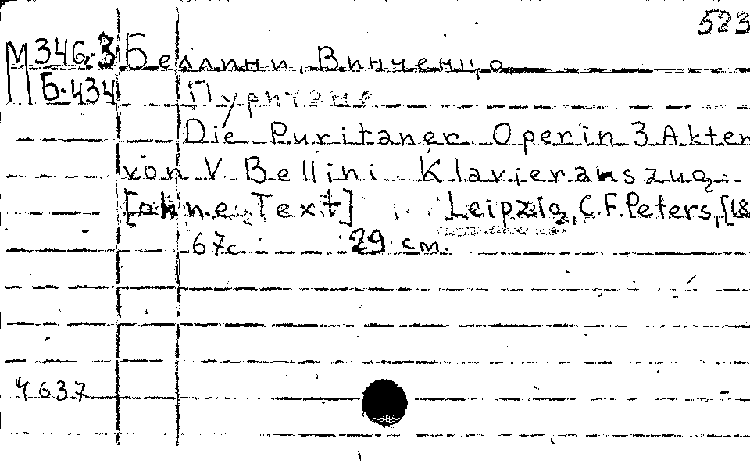 523
М346.3 Беллини, Винченцо
Б.434 Пуритане
Die Puritaner Oper in 3 Akten
von V. Bellini Klavierauszug
[ohne Text] Leipzig, C.F. Peters, [18
67с 29 см.
4637